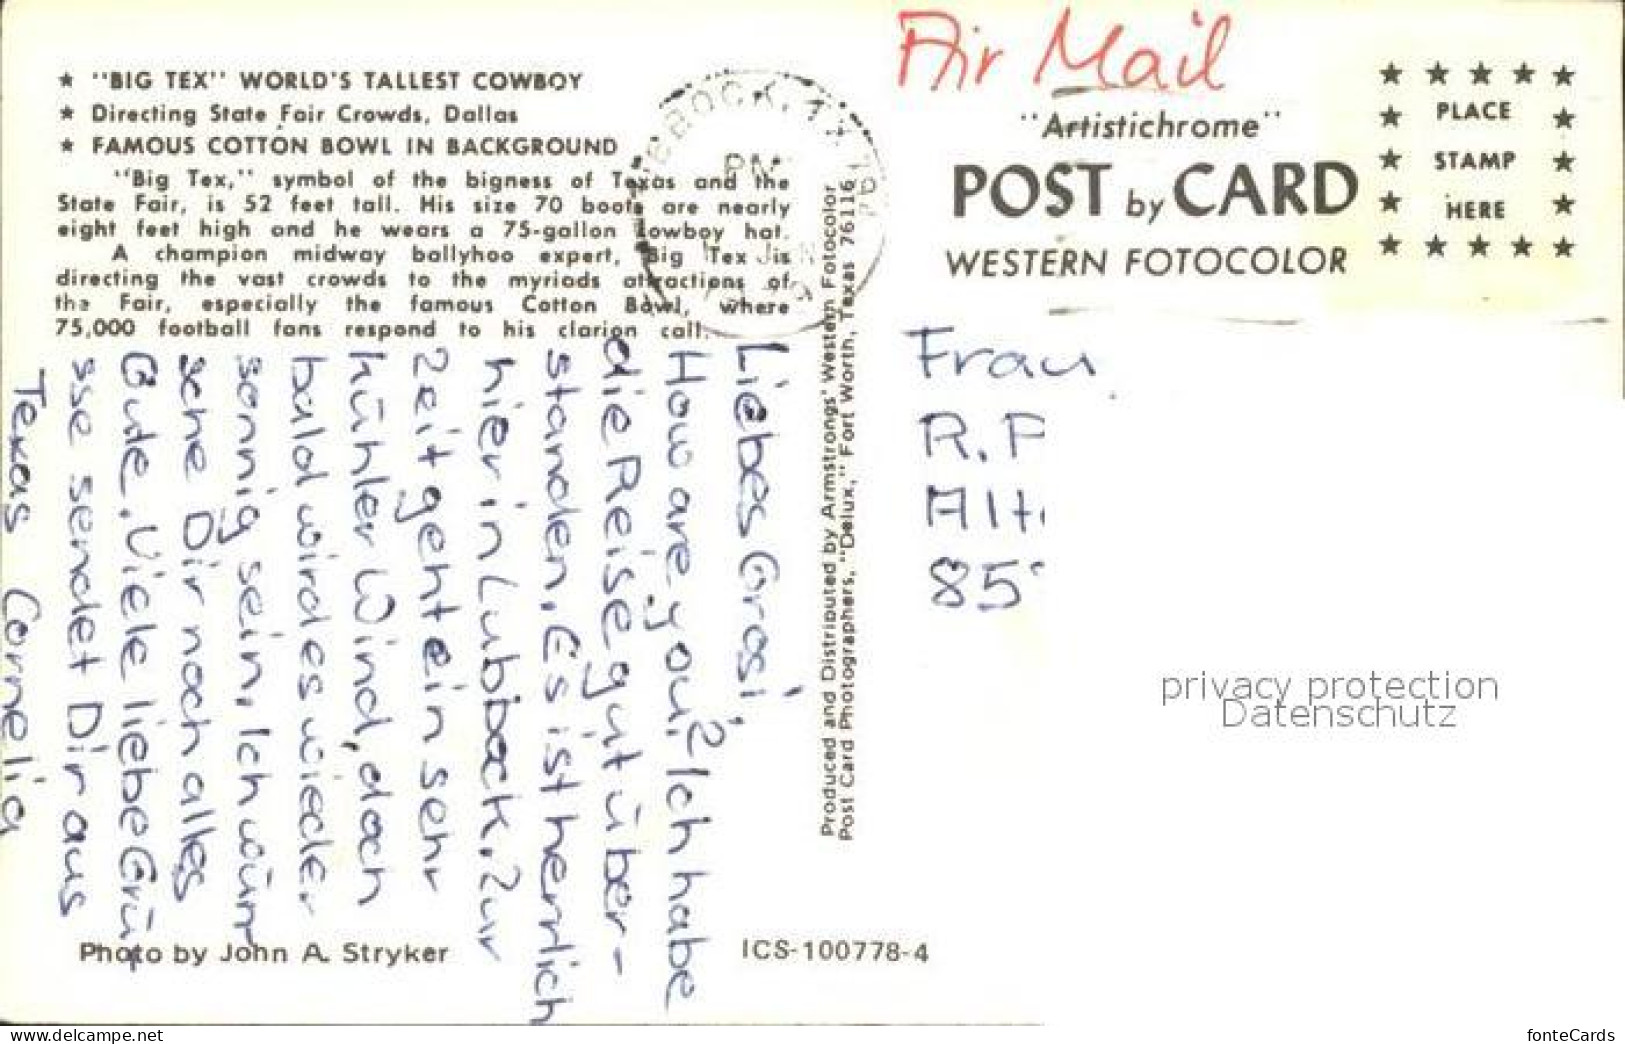 ★ "BIG TEX" WORLD'S TALLEST COWBOY
★ Directing State Fair Crowds, Dallas
★ FAMOUS COTTON BOWL IN BACKGROUND
"Big Tex," symbol of the bigness of Texas and the
State Fair, is 52 feet tall. His size 70 boots are nearly
eight feet high and he wears a 75-gallon cowboy hat.
A champion midway ballyhoo expert, Big Tex is
directing the vast crowds to the myriads attractions of
the Fair, especially the famous Cotton Bowl, where
75,000 football fans respond to his clarion call.
Liebes Grosi,
How are you? Ich habe
die Reise gut über-
standen. Es ist herrlich
hier in Lubbock. Zur
Zeit geht ein sehr
kühler Wind, doch
bald wird es wieder
sonnig sein. Ich wün
sche Dir noch alles
Gute. Viele liebe Grü
sse sendet Dir aus
Texas Cornelia
Photo by John A. Stryker
ICS-100778-4
Produced and Distributed by Armstrongs' Western Fotocolor
Post Card Photographers, "Delux," Fort Worth, Texas 76116
BBOCK, TX
PM
Air Mail
"Artistichrome"
POST by CARD
WESTERN FOTOCOLOR
PLACE
STAMP
HERE
Frau
R. P
Alt
85
privacy protection
Datenschutz
ansichtskarten-center.com
fonteCards